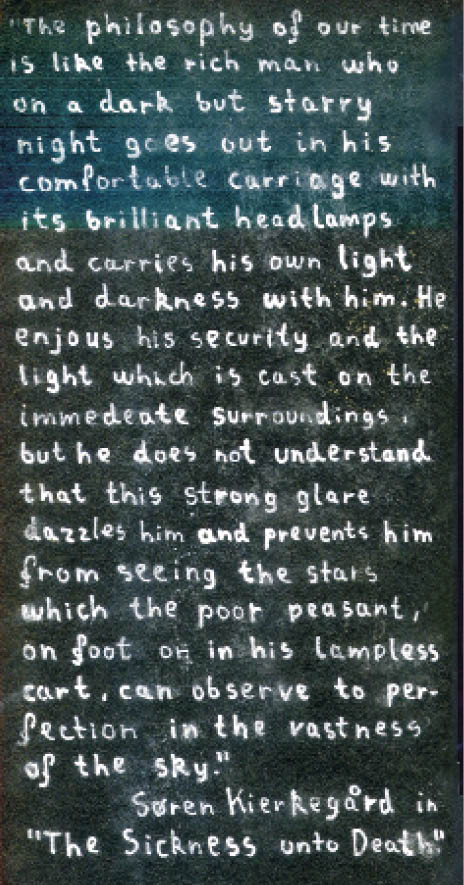 "The philosophy of our time
is like the rich man who
on a dark but starry
night goes out in his
comfortable carriage with
its brilliant headlamps
and carries his own light
and darkness with him. He
enjous his security and the
light which is cast on the
immedeate surroundings,
but he does not understand
that this strong glare
dazzles him and prevents him
from seeing the stars
which the poor peasant,
on foot or in his lampless
cart, can observe to per-
fection in the vastness
of the sky."
Søren Kierkegård in
"The Sickness unto Death"